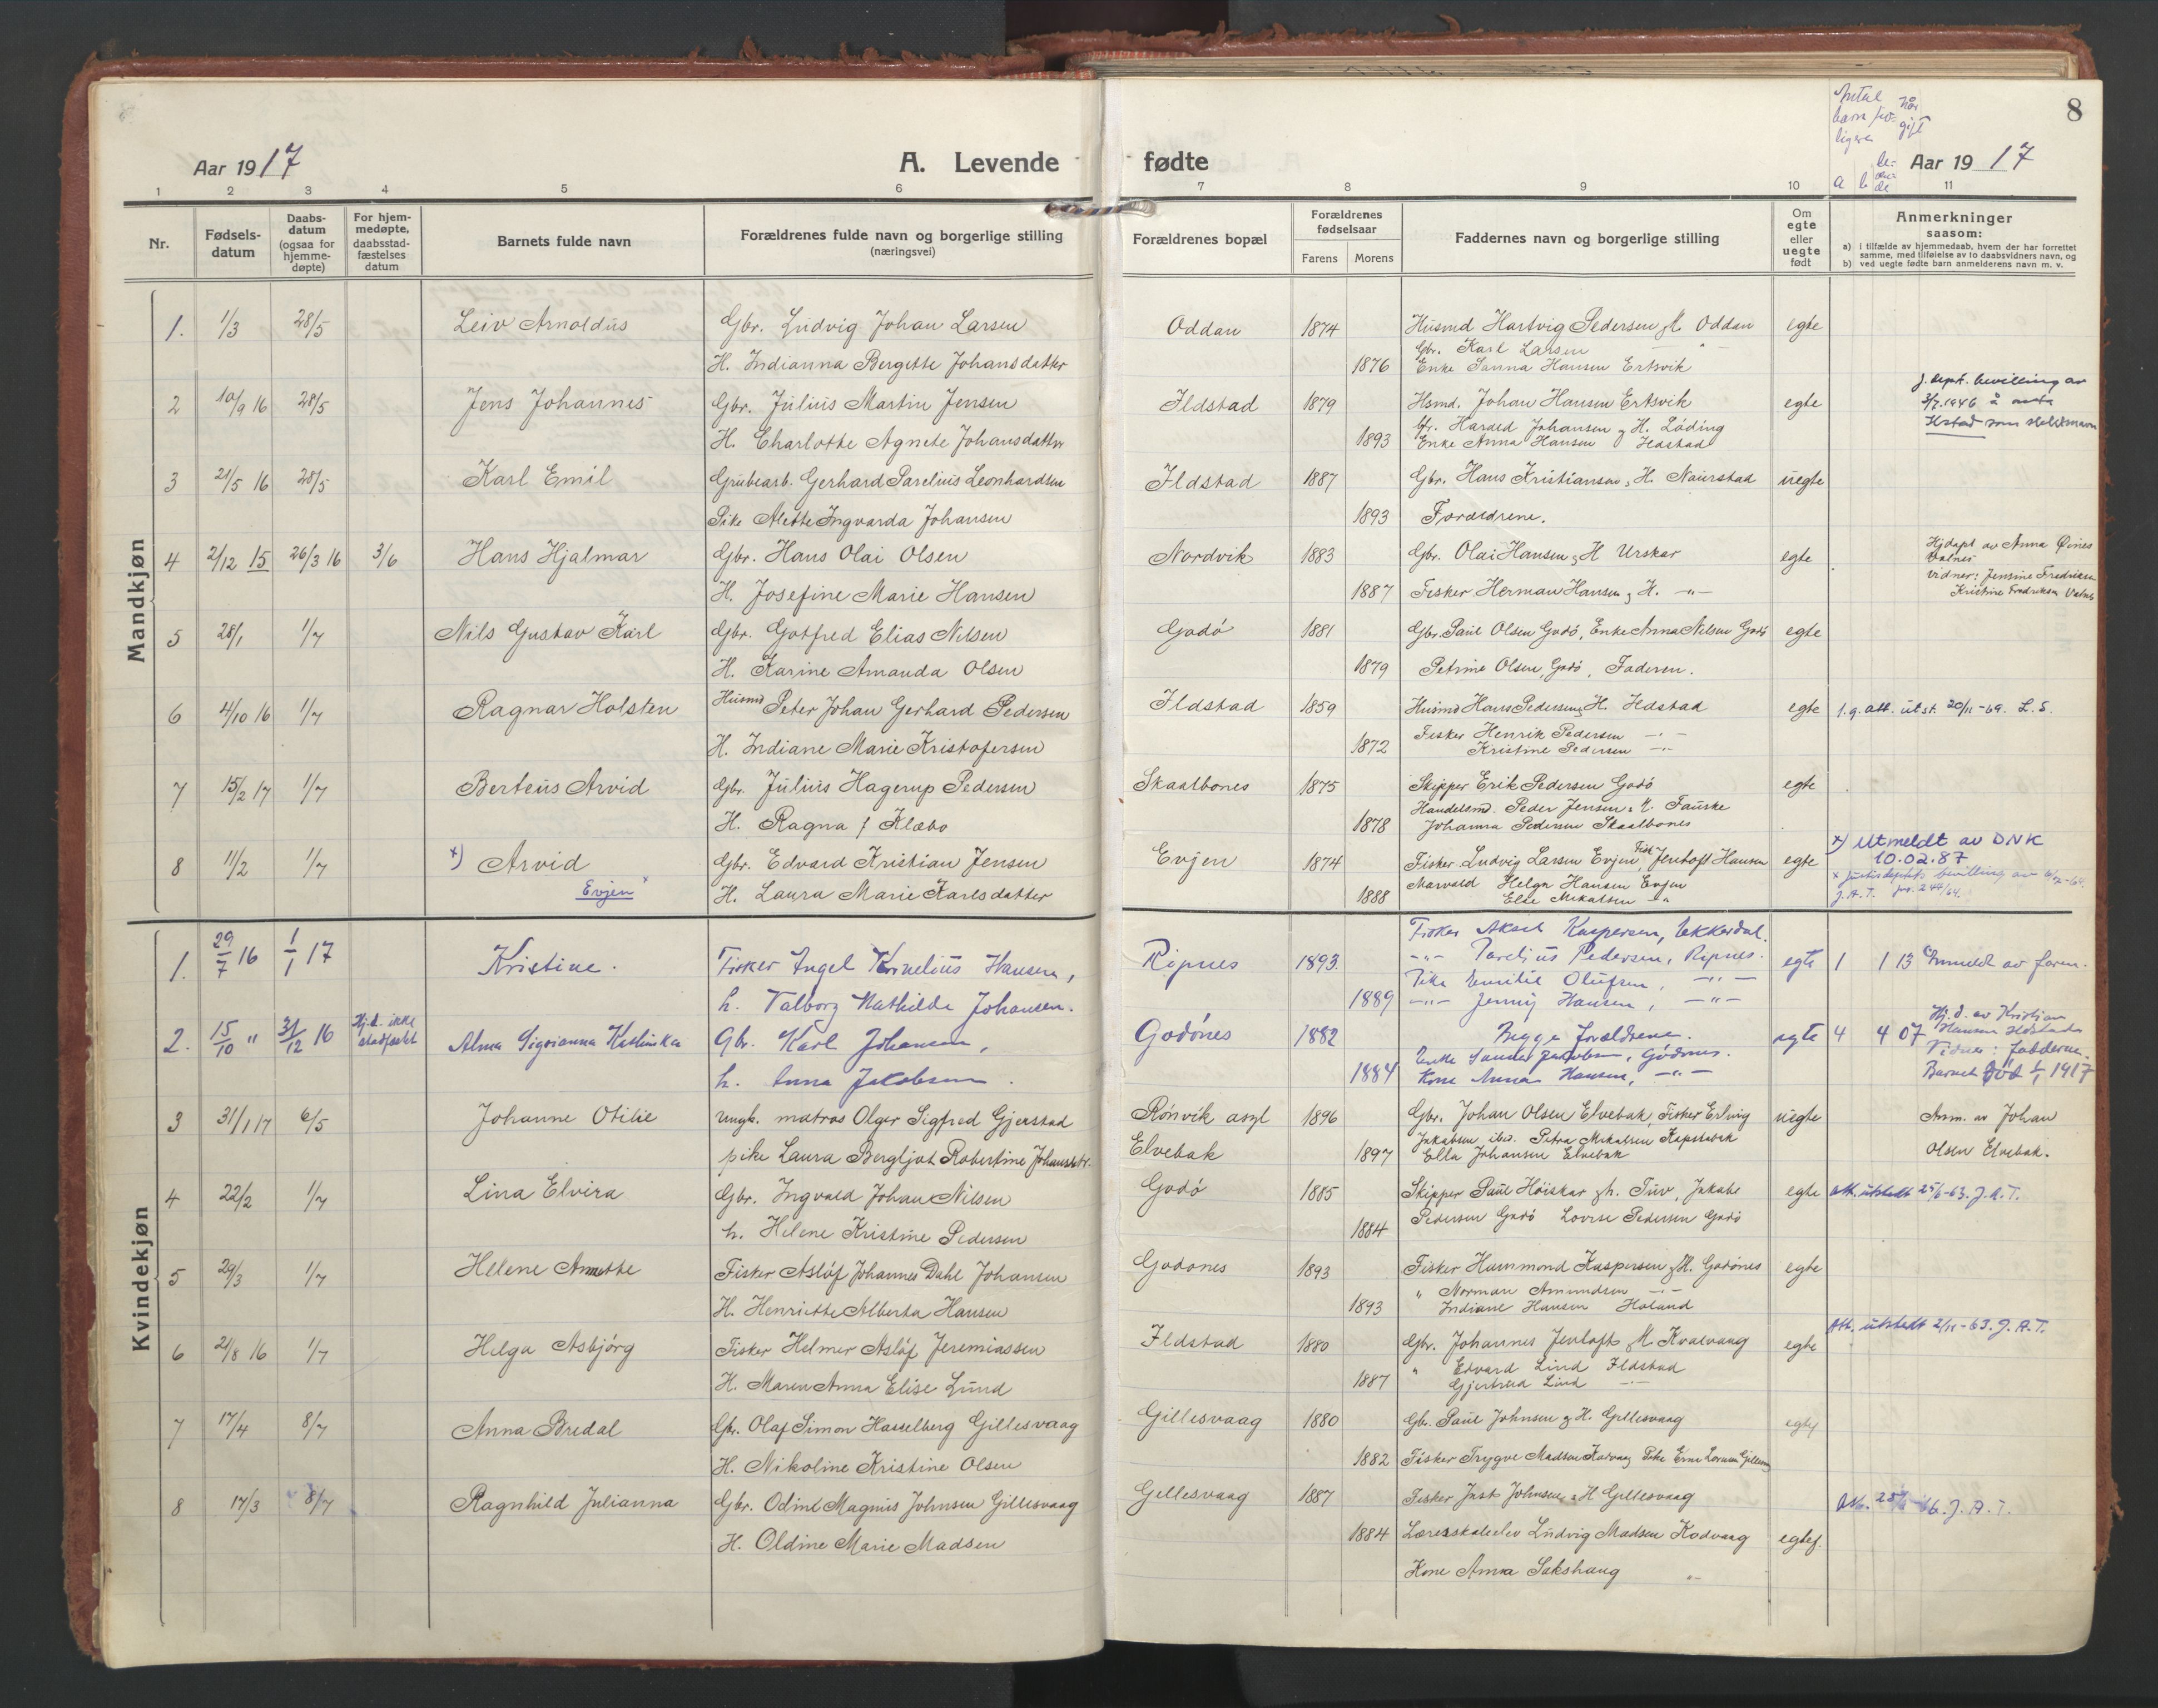 8
Antal barn når gift
a b
Aar 1917 A. Levende fødte Aar 1917
1 2 3 4 5 6 7 8 9 10 11
Nr. Fødsels-datum Daabs-datum (ogsaa for hjemme-døpte) For hjem-medøpte, daabsstad-fæstelses datum Barnets fulde navn Forældrenes fulde navn og borgerlige stilling (næringsvei) Forældrenes bopæl Forældrenes fødselsaar Farens Morens Faddernes navn og borgerlige stilling Om egte eller uegte født Anmerkninger saasom:
a) i tilfælde av hjemmedaab, hvem der har forrettet samme, med tilføielse av to daabsvidners navn, og
b) ved uegte fødte barn anmelderens navn m. v.
Mandkjøn
1. 1/3 28/5 Leiv Arnoldus Gbr. Ludvig Johan Larsen Oddan 1874 Husmd Hartvig Pedersen & H. Oddan egte
Gbr. Karl Larsen - " -
H. Indianna Bergitte Johansdatter 1876 Enke Sanna Hansen Ertsvik
2 10/9 16 28/5 Jens Johannes Gbr. Julius Martin Jensen Ildstad 1879 Hsmd. Johan Hansen Ertsvik egte J. dept. bevilling av
3/7.1946 å anta
Ilstad som slektsnavn
H. Charlotte Agnete Johansdatter 1893 Gbr. Harald Johansen & H. Löding
Enke Anna Hansen Ildstad
3 21/5 16 28/5 Karl Emil Grubearb. Gerhard Parelius Leonhardsen Ildstad 1887 Gbr. Hans Kristiansen & H. Naurstad uegte
Pike Alette Ingvarda Johansen 1893 Forældrene.
4 2/12 15 26/3 16 3/6 Hans Hjalmar Gbr. Hans Olai Olsen Nordvik 1883 Gbr. Olai Hansen & H Urskar egte Hjdøpt av Anna Øines
Valnes
H. Josefine Marie Hansen 1887 Fisker Herman Hansen & H. -"- vidner: Jensine Fredriksen
Kristine Fredriksen Valnes
5 28/1 1/7 Nils Gustav Karl Gbr. Gotfred Elias Nilsen Godö 1881 Gbr. Paul Olsen Godö, Enke Anna Nilsen Godö egte
H. Karine Amanda Olsen 1879 Petrine Olsen, Godö, Faderen.
6 4/10 16 1/7 Ragnar Holsten Husmd Peter Johan Gerhard Pedersen Ildstad 1859 Husmd Hans Pedersen & H. Ildstad egte f.g. att. utst. 20/11-69. L.S.
H. Indiane Marie Kristofersen 1872 Fisker Henrik Pedersen -"-
Kristine Pedersen -"-
7 15/2 17 1/7 Berteus Arvid Gbr. Julius Hagerup Pedersen Skaalbones 1875 Skipper Erik Pedersen Godö egte
Handelsmd. Peder Jensen & H. Fauske
H. Ragna f Klæbo 1878 Johanna Pedersen Skaalbones
8 11/2 1/7 x) Arvid Gbr. Edvard Kristian Jensen Evjen 1874 Fisker Ludvig Larsen Evjen, Fisk. Jentoft Hansen egte x) Utmeldt av DNK
10.02.87
Evjen x H. Laura Marie Karlsdatter 1888 Helga Hansen Evjen
Else Mikalsen -"- x Justisdeptets bevilling av
J.A.T. jnr. 244/64.
Kvindekjøn
1. 29/7 16 1/1 17 Kristine. Fisker Engel Kornelius Hansen, Ripnes 1893. Fisker Aksel Kaspersen, Vekkerdal.
-"- Parelius Pedersen, Ripnes. egte 1 1 13 Anmeldt av faren.
h. Valborg Mathilde Johansen. 1889 Pike Emilie Olufsen, -"-
-"- Jenny Hansen, -"-
2. 15/10 " 31/12 16 Hj.d. ikke stadfæstet Alma Sigvianna Kathinka Gbr. Karl Johansen, Godönes 1882 Begge forældrene. egte 4 4 07 Hj.d. av Kristian
Hansen Ildstad
Vidner: fadderne.
h. Anna Jakobsen. 1884 Enke Sanna Jakobsen, Godönes.
Kone Anna Hansen, -"- Barnet död 1/1 1917
3 31/1 17 6/5 Johanne Otilie ungk. matros Olger Sigfred Gjerstad Rönvik asyl 1896 Gbr. Johan Olsen Elvebak, Fisker Erling uegte Anm. av Johan
pike Laura Bergljot Robertine Johansdtr. Elvebak 1897 Jakobsen ibid. Petra Mikalsen
Ella Johansen Elvebak Olsen Elvebak.
4 22/2 1/7 Lina Elvira Gbr. Ingvald Johan Nilsen Godö 1885 Skipper Paul Höiskar & h. Tuv, Jakobe egte Att. utstedt 25/6-63. J.A.T.
h. Helene Kristine Pedersen 1884 Pedersen Godö Lovise Pedersen Godö
5 29/3 1/7 Helene Annette Fisker Aslöf Johannes Dahl Johansen Godönes 1893 Fisker Hammond Kaspersen & H. Godönes egte
H. Henriette Alberta Hansen 1893 " Norman Amundsen -"-
Indiane Hansen Holand
6 21/8 16 1/7 Helga Asbjörg Fisker Helmer Aslöf Jeremiassen Ildstad 1880 Gbr. Johannes Jentoft & H Kvalvaag egte Att. utstedt 2/11-63. J.A.T.
H. Maren Anna Elise Lund 1887 " Edvard Lind Ildstad
Gjertrud Lind -"-
7 17/4 8/7 Anna Bredal Gbr. Olaf Simon Hasselberg Gillesvaag Gillesvaag 1880 Gbr. Paul Johnsen & H. Gillesvaag egtef
H. Nikoline Kristine Olsen 1882 Fisker Trygve Madsen Kodvaag Pike Erne
8 17/3 8/7 Ragnhild Julianna Gbr. Odin Magnus Johnsen Gillesvaag Gillesvaag 1887 Fisker Just Johnsen & H Gillesvaag Att. 25/ -66. J.A.T.
H. Oldine Marie Madsen 1884 Lærerskoleelev Ludvig Madsen Kodvaag egtef.
Kone Anna Sakshaug -"-